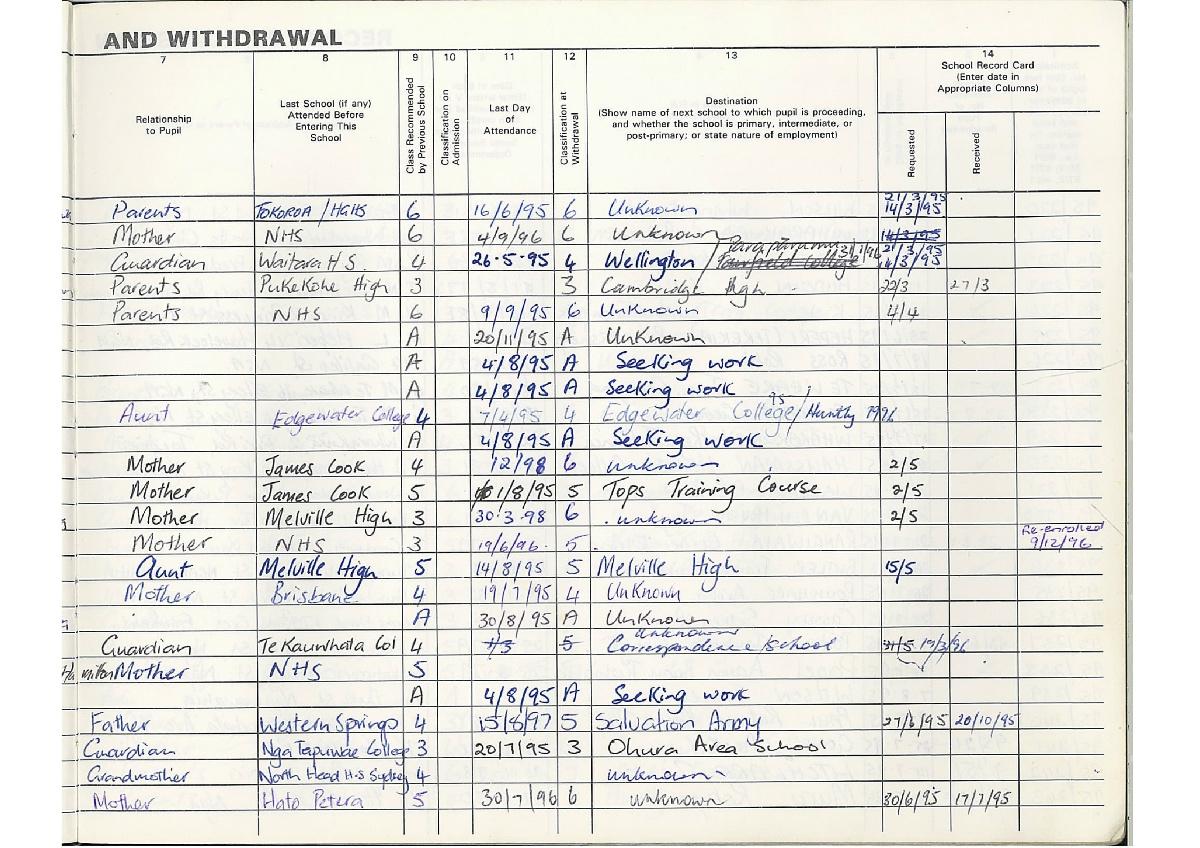 AND WITHDRAWAL
7 8 9 10 11 12 13 14
Relationship to Pupil
Last School (if any) Attended Before Entering This School
Class Recommended by Previous School
Classification on Admission
Last Day of Attendance
Classification at Withdrawal
Destination
(Show name of next school to which pupil is proceeding, and whether the school is primary, intermediate, or post-primary; or state nature of employment)
School Record Card (Enter date in Appropriate Columns)
Requested
Received
21/3/95
Parents TOKOROA / HGHS 6 16/6/95 6 Unknown 14/3/95
Mother NHS 6 4/9/96 6 Unknown 14/3/95
Paraparaumu 31/1/96 21/3/95
Guardian Waitara H S. 4 26·5·95 4 Wellington / Fairfield College 14/3/95
Parents Pukekohe High 3 3 Cambridge High 22/3 27/3
Parents NHS 6 9/9/95 6 Unknown 4/4
A 20/11/95 A Unknown
A 4/8/95 A Seeking work
A 4/8/95 A Seeking work
Aunt Edgewater College 4 7/4/95 4 Edgewater College 95 / Huntly 1996
A 4/8/95 A Seeking work
Mother James Cook 4 12/98 6 unknown 2/5
Mother James Cook 5 1/8/95 5 Tops Training Course 2/5
Mother Melville High 3 30·3·98 6 unknown 2/5
Mother NHS 3 19/6/96 5 Re-enrolled 9/12/96
Aunt Melville High 5 14/8/95 5 Melville High 15/5
Mother Brisbane 4 19/7/95 4 Unknown
A 30/8/95 A Unknown
Unknown
Guardian Te Kauwhata Col 4 5 Correspondence School 19/3/96
Mother NHS 5
A 4/8/95 A Seeking work
Father Western Springs 4 15/8/97 5 Salvation Army 27/6/95 20/10/95
Guardian Nga Tapuwae College 3 20/7/95 3 Ohura Area School
Grandmother North Head H·S Sydney 4 unknown
Mother Hato Petera 5 30/7/96 6 unknown 30/6/95 17/7/95